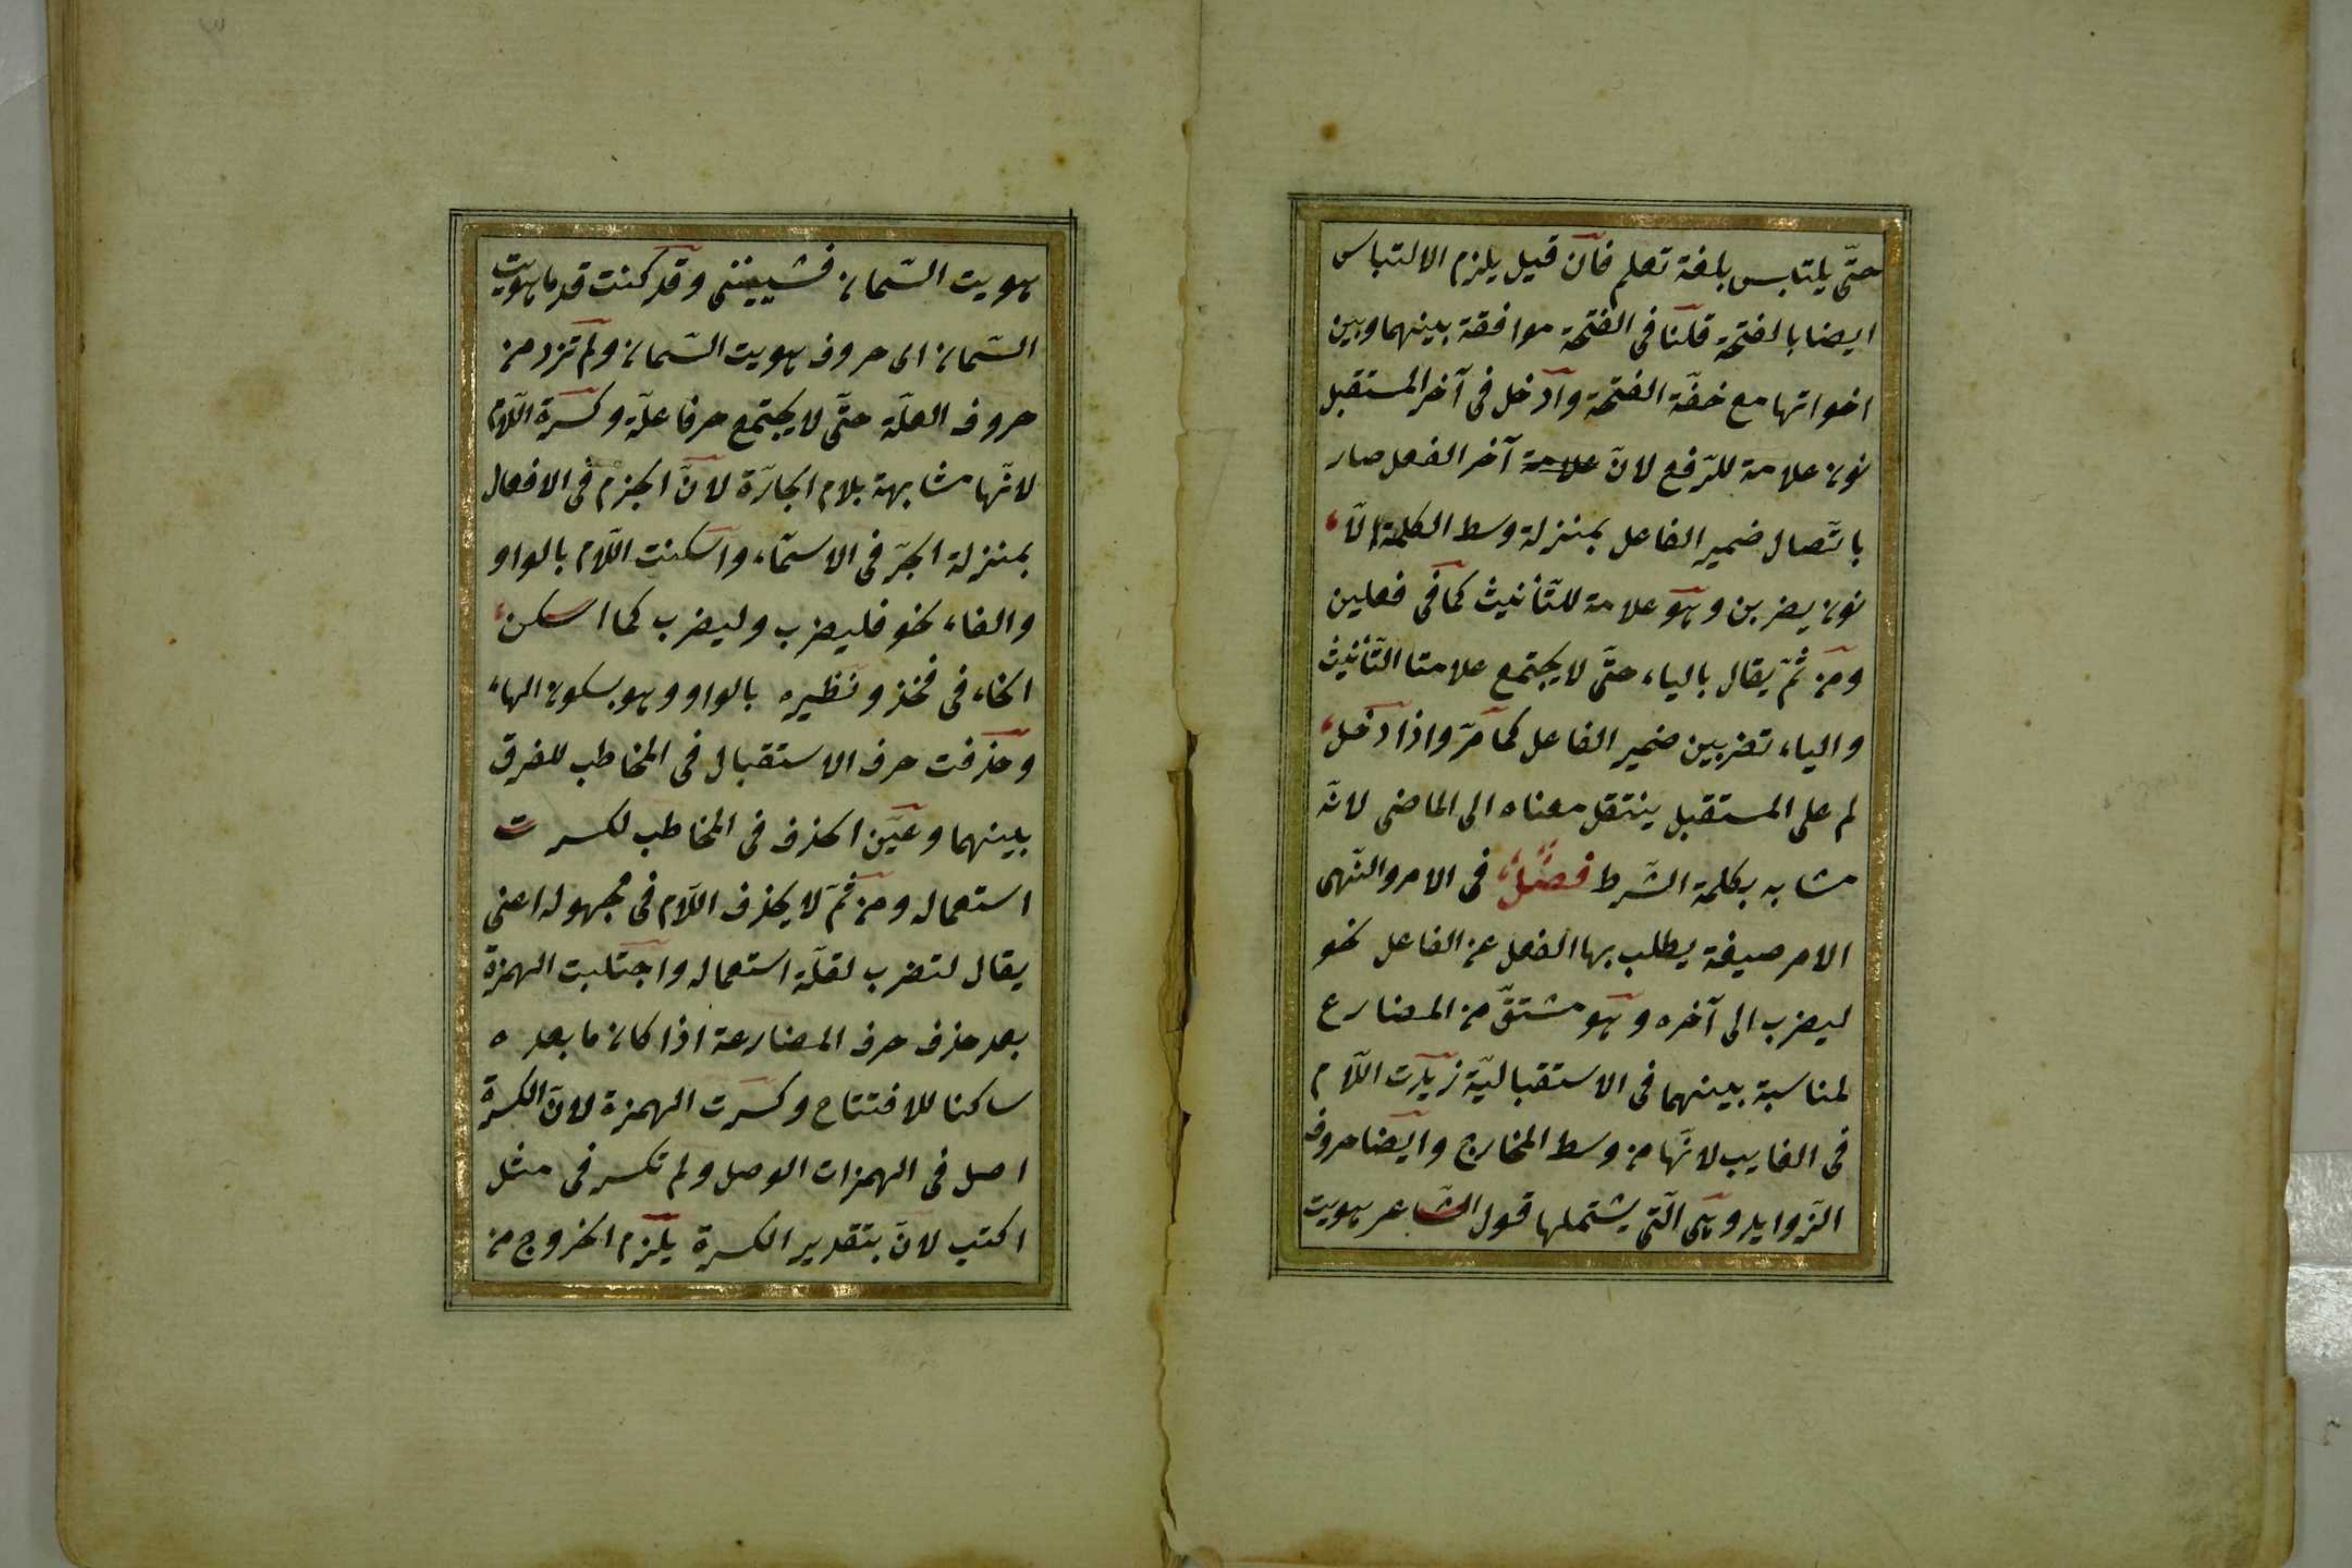 حتّى يلتبس بلغة تعلم فان قيل يلزم الالتباس
ايضا بالفتحة قلنا فى الفتحة موافقة بينهما وبين
اخواتها مع خفّة الفتحة وادخل فى آخر المستقبل
نون علامة للرّفع لانّ علامة آخر الفعل صار
باتّصال ضمير الفاعل بمنزلة وسط الكلمة الّا
نون يضربن وهو علامة للتّأنيث كما فى فعلين
ومن ثمّ يقال بالياء حتّى لا يجتمع علامتا التّأنيث
والياء تضربين ضمير الفاعل كما مرّ واذا دخل
لم على المستقبل ينتقل معناه الى الماضى لانّه
مشابه بكلمة الشّرط فصل فى الامر والنّهى
الامر صيغة يطلب بها الفعل عن الفاعل نحو
ليضرب الى آخره وهو مشتقّ من المضارع
لمناسبة بينهما فى الاستقباليّة زيدت اللّام
فى الغايب لانّها من وسط المخارج وايضا حروف
الزّوايد وهى الّتى يشتملها قول الشّاعر هويت
هويت السّمان فشيبننى وقد كنت قدما هويت
السّمان اى حروف هويت السّمان ولم تزد من
حروف العلّة حتّى لا يجتمع حرفا علّة وكسرة اللّام
لانّها مشابهة بلام الجارّة لانّ الجزم فى الافعال
بمنزلة الجرّ فى الاسماء واسكنت اللّام بالواو
والفاء نحو فليضرب وليضرب كما اسكن
الخاء فى فخذ ونظيره بالواو وهو بسكون الهاء
وحذفت حرف الاستقبال فى المخاطب للفرق
بينهما وعيّن الحذف فى المخاطب لكسرت
استعماله ومن ثمّ لا يحذف اللّام فى مجهوله اعنى
يقال لتضرب لقلّة استعماله واجتلبت الهمزة
بعد حذف حرف المضارعة اذا كان ما بعده
ساكنا للافتتاح وكسرت الهمزة لانّ الكسرة
اصل فى الهمزات الوصل ولم تكسر فى مثل
اكتب لانّ بتقدير الكسرة يلزم الخروج من